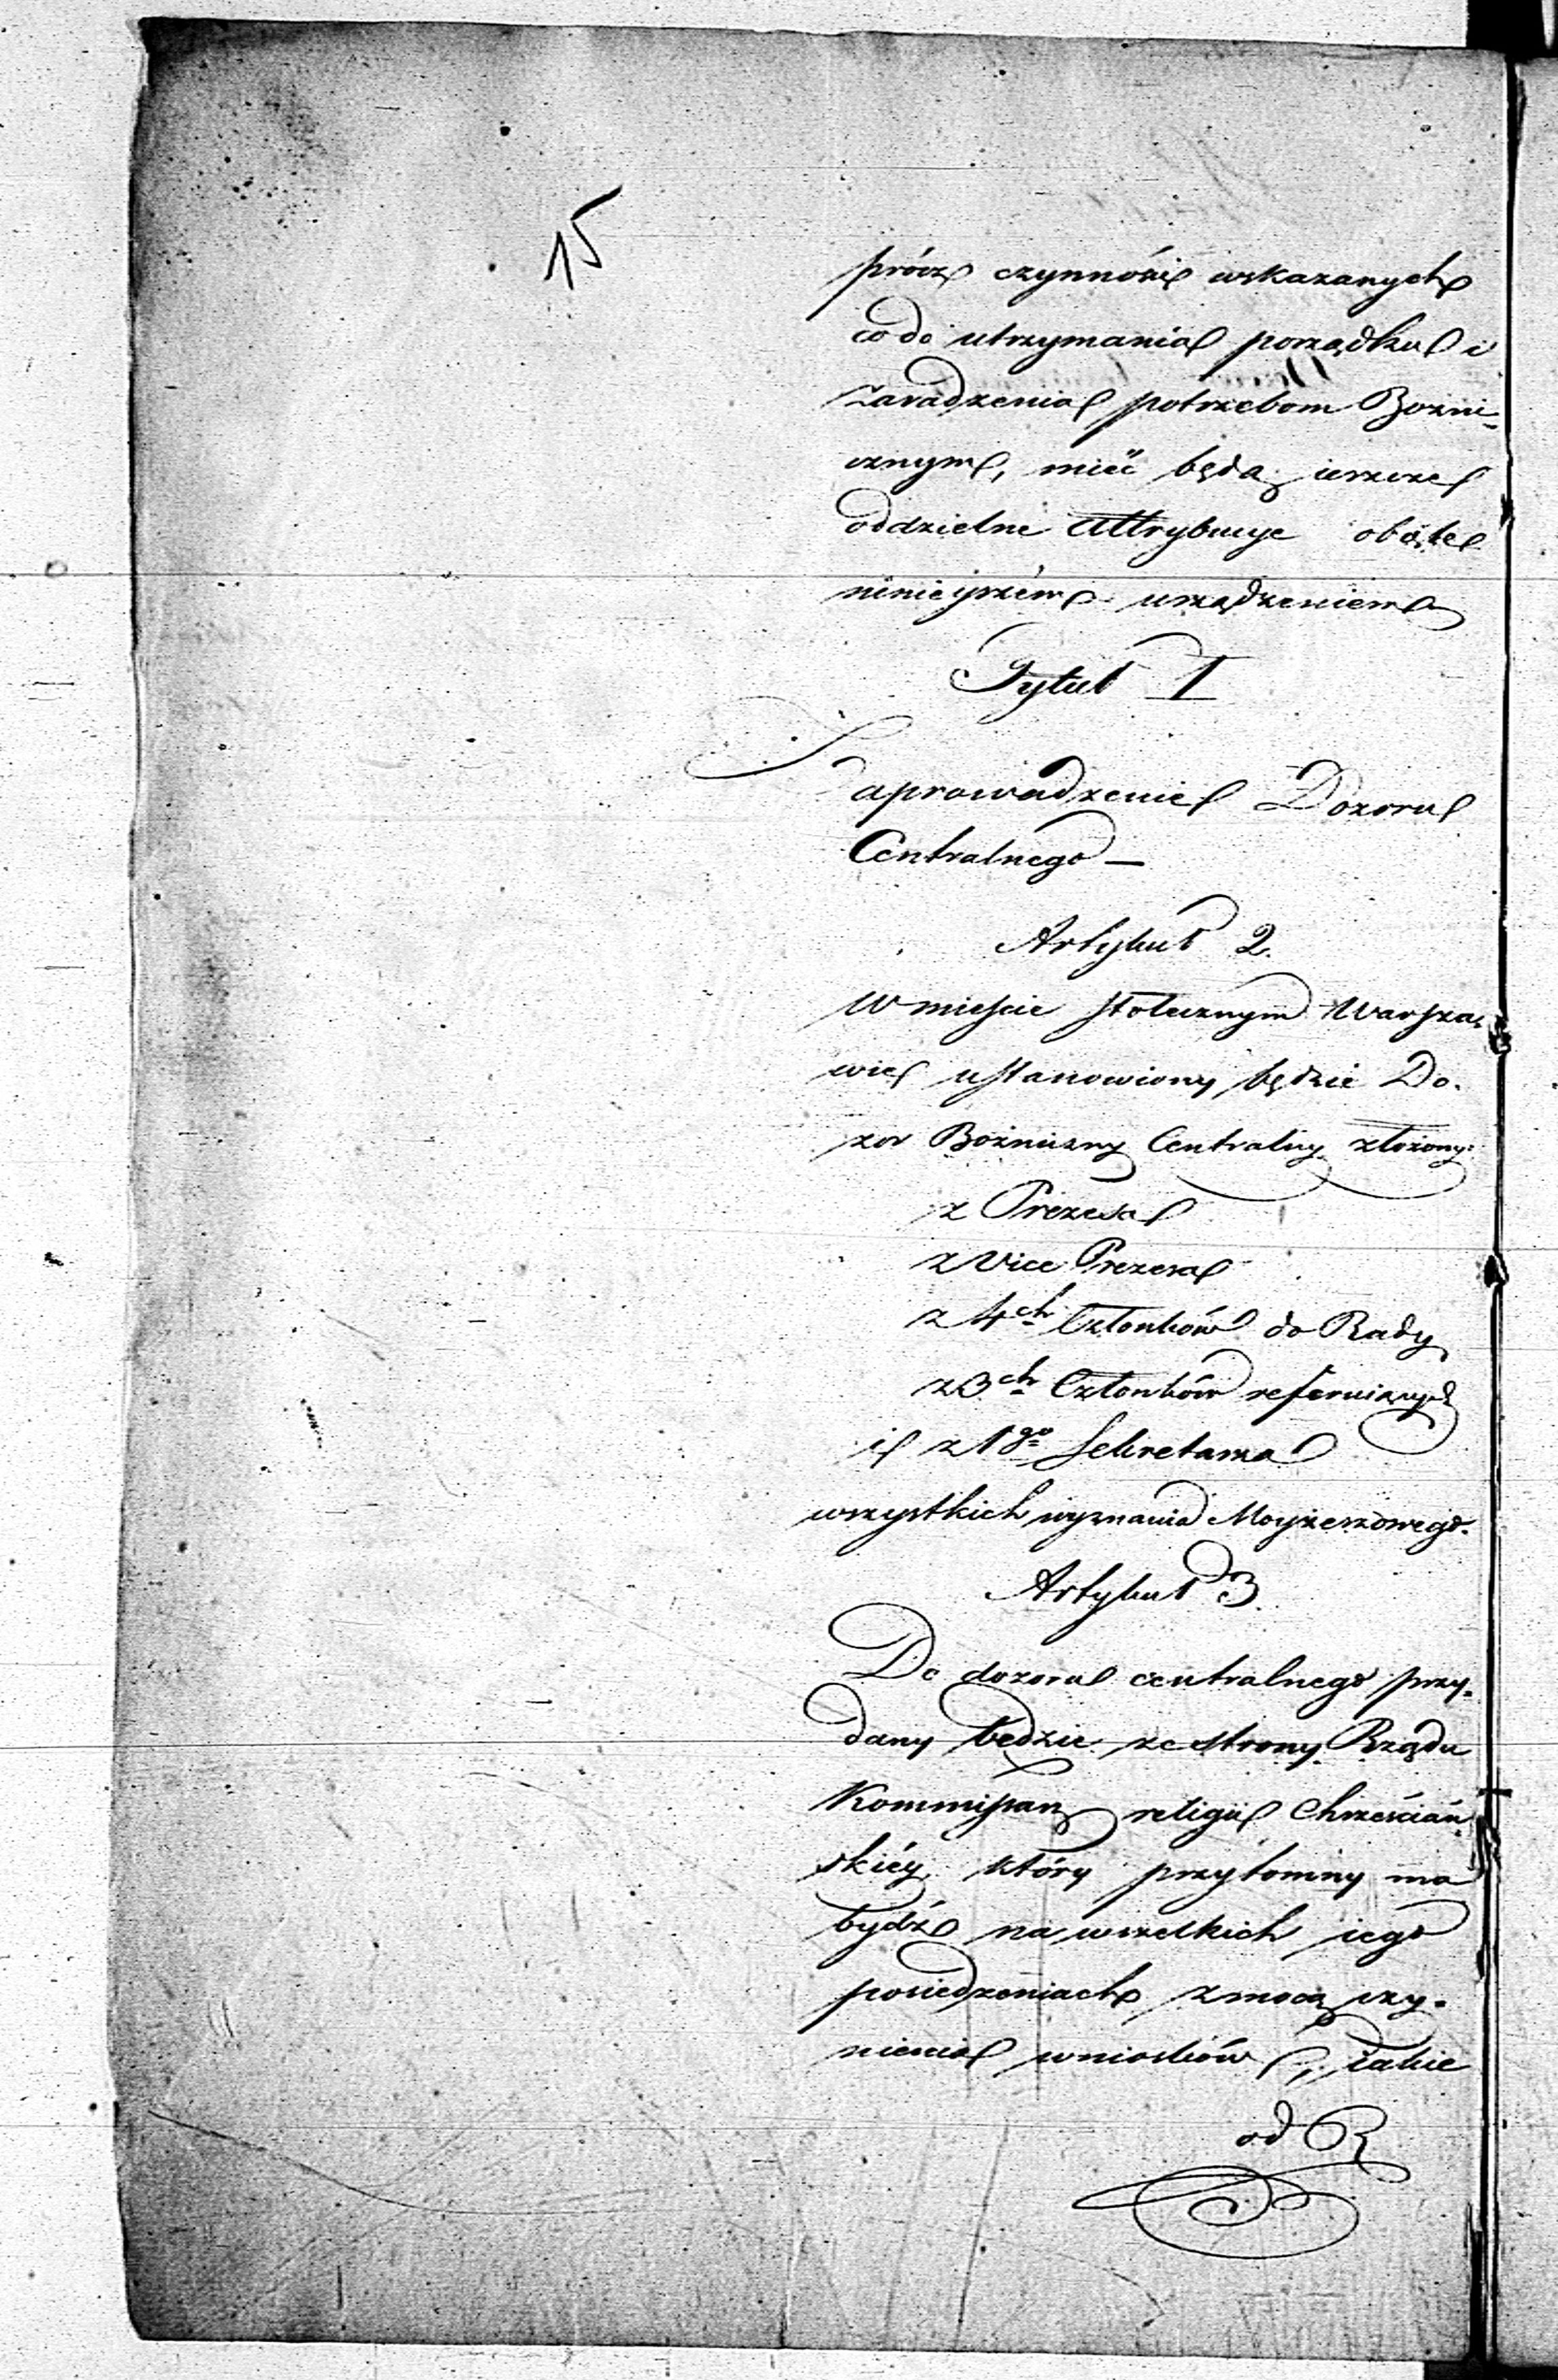 15
prócz czynności wskazanych
co do utrzymania porządku i
zaradzenia potrzebom Bożni-
cznym, mieć będą ieszcze
oddzielne Attrybucye obięte
ninieyszém urządzeniem
Tytuł I
Zaprowadzenie Dozoru
Centralnego —
Artykuł 2.
W mieście stołecznym Warsza-
wie ustanowiony będzie Do-
zor Bożniczny Centralny złożony:
z Prezesa
z Vice Prezesa
z 4ch Członków do Rady
z 3ch Członków referuiących
i z 1go Sekretarza
wszystkich wyznania Moyżeszowego.
Artykuł 3.
Do dozoru centralnego przy-
dany będzie ze strony Rządu
Kommissarz religii Chrześciań-
skiéy który przytomny ma
bydź na wszelkich iego
posiedzeniach z mocą czy-
nienia wniosków, iakie
od R